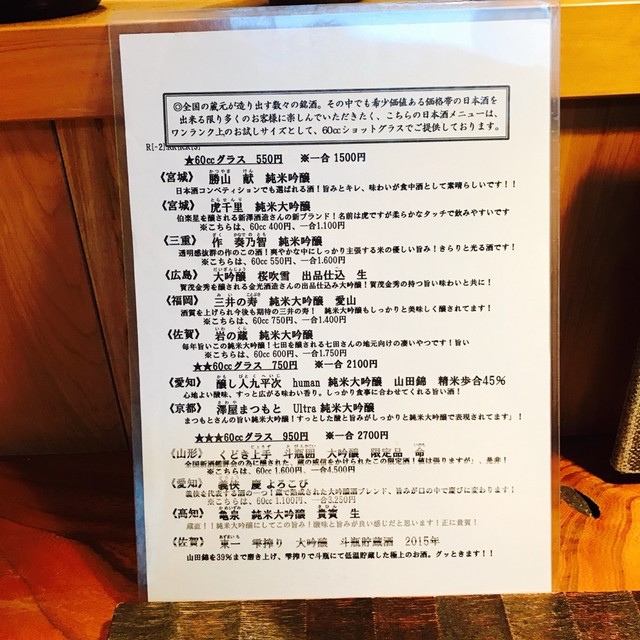 ◎全国の蔵元が造り出す数々の銘酒。その中でも希少価値ある価格帯の日本酒を
出来る限り多くのお客様に楽しんでいただきたく、こちらの日本酒メニューは、
ワンランク上のお試しサイズとして、60ccショットグラスでご提供しております。
★60ccグラス 550円 ※一合 1500円
《宮城》 勝山 献 純米吟醸
日本酒コンペティションでも選ばれる酒！旨みとキレ、味わいが食中酒として素晴らしいです！！
《宮城》 虎千里 純米大吟醸
伯楽星を醸される新澤酒造さんの新ブランド！名前は虎ですが柔らかなタッチで飲みやすいです
※こちらは、60cc 400円、一合1.100円
《三重》 作 奏乃智 純米吟醸
透明感抜群の作のこの酒！爽やかな中にしっかり主張する米の優しい旨み！きらりと光る酒です！
※こちらは、60cc 550円、一合1.600円
《広島》 大吟醸 桜吹雪 出品仕込 生
賀茂金秀を醸される金光酒造さんの出品仕込み大吟醸！賀茂金秀の持つ旨い味わいと共に！
《福岡》 三井の寿 純米大吟醸 愛山
酒質を上げられ今後も期待の三井の寿！ 純米大吟醸もしっかりと美味しく醸されてます！
※こちらは、60cc 750円、一合1.400円
《佐賀》 岩の蔵 純米大吟醸
毎年旨いこの純米大吟醸！七田を醸される七田さんの地元向けの凄いやつです！旨い
※こちらは、60cc 600円、一合1.750円
★★60ccグラス 750円 ※一合 2100円
《愛知》 醸し人九平次 human 純米大吟醸 山田錦 精米歩合45%
心地よい酸味、すっと広がる味わい香り。しっかり食事に合わせてくれる旨い酒！
《京都》 澤屋まつもと Ultra 純米大吟醸
まつもとさんの旨い純米大吟醸！すっとした酸と旨みがしっかりと純米大吟醸で表現されてます」！
★★★60ccグラス 950円 ※一合 2700円
《山形》 くどき上手 斗瓶囲 大吟醸 限定品 命
全国新酒鑑評会の為に醸された、蔵の威信をかけられたこの限定酒！値は張りますが」、是非！
※こちらは、60cc 1.600円、一合4,500円
《愛知》 義侠 慶 よろこび
義侠を代表する酒の一つ！
※こちらは、60cc 1.100円、一合3,250円
《高知》 亀泉 純米大吟醸 貴賓 生
蔵直！！純米大吟醸にしてこの旨い！酸味と旨みが良い感じだと思います！正に貴賓！
《佐賀》 東一 雫搾り 大吟醸 斗瓶貯蔵酒 2015年
山田錦を39%まで磨き上げ、雫搾りで斗瓶にて低温貯蔵した極上のお酒。グッときます！！